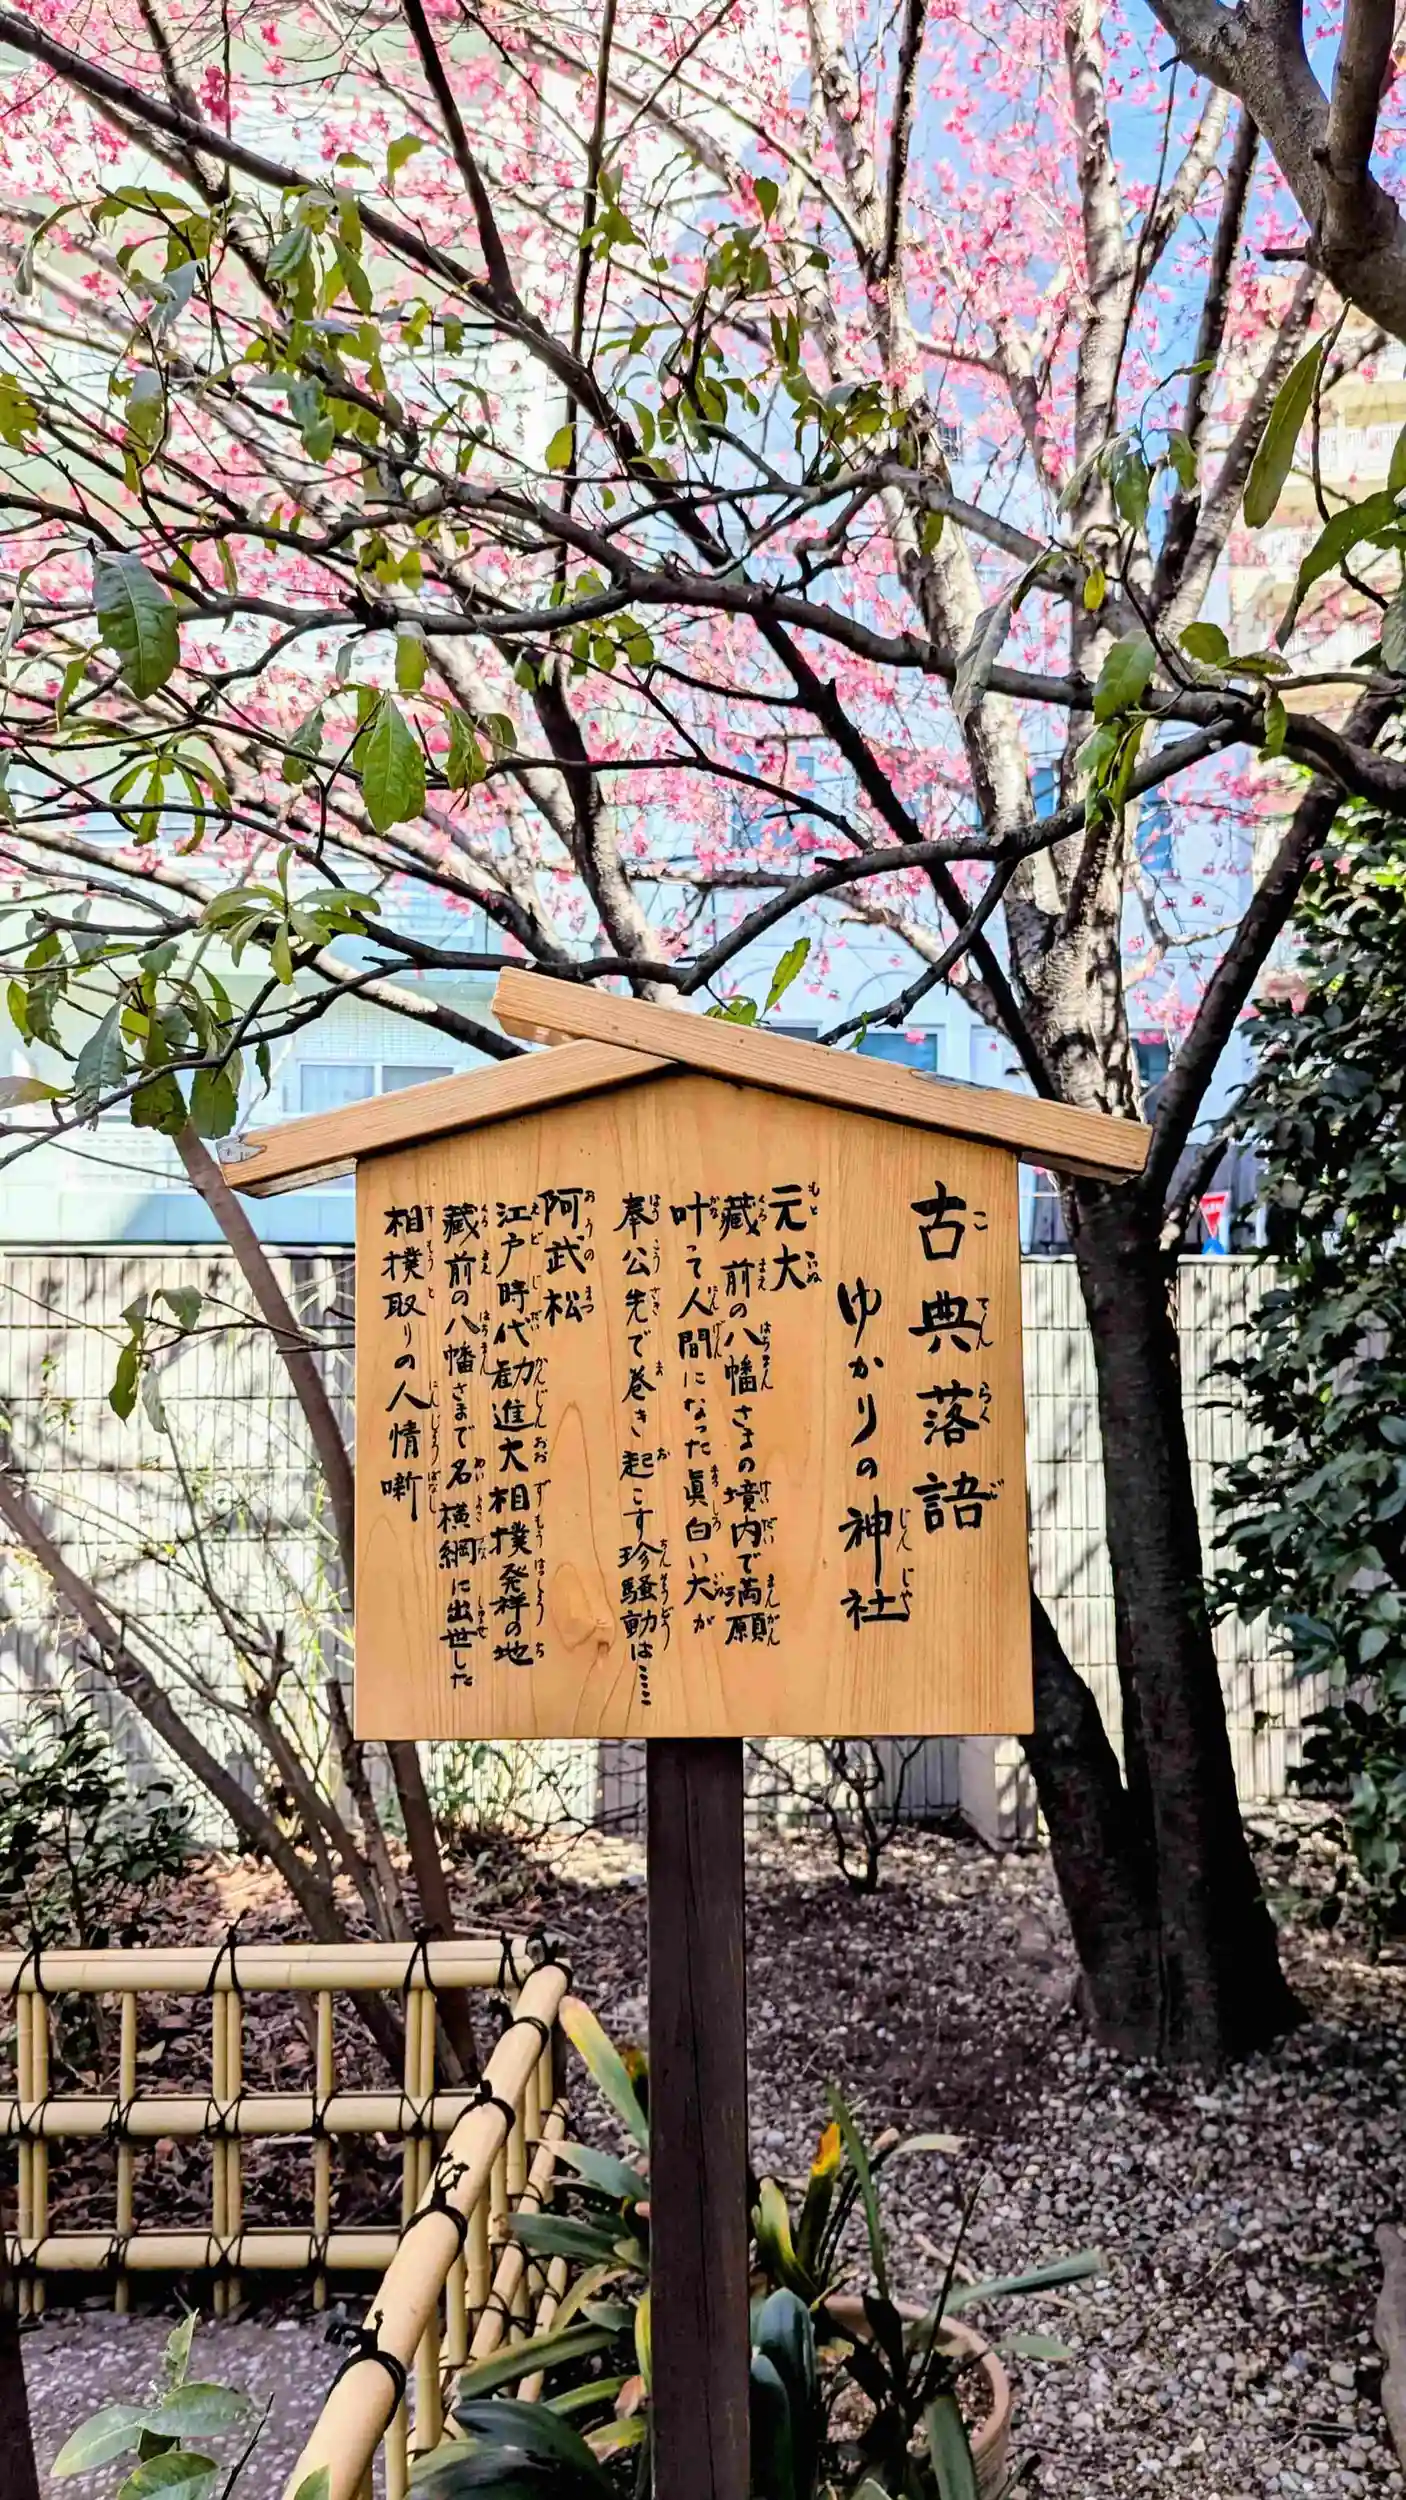 古典落語
ゆかりの神社
元犬
蔵前の八幡さまの境内で満願
叶って人間になった眞白い犬が
奉公先で巻き起こす珍騒動は……
阿武松
江戸時代勧進大相撲発祥の地
蔵前の八幡さまで名横綱に出世した
相撲取りの人情噺